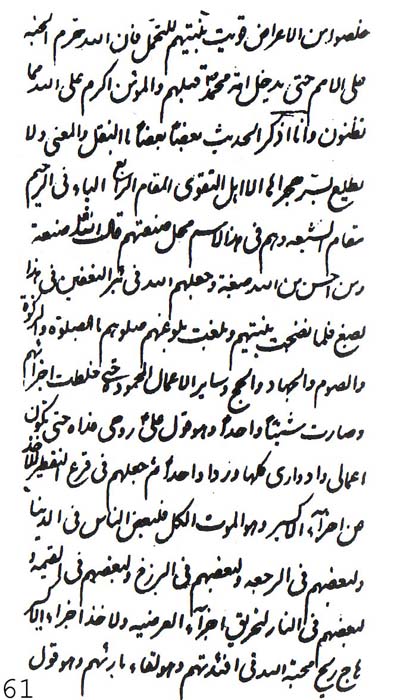 خلصوا من الاعراض قويت بنيتهم للتحمل فان الله حرم الجنة
على الامم حتى يدخل امة محمد ص قبلهم والمؤمن اكرم على الله مما
تظنون وانا اذكر الحديث بعضاً بعضاً بالنقل والمعنى ولا
يطلع بسر الا اهل التقوى المقام الرابع الباء فى الرحيم
مقام الشيعه وهم فى هذا الاسم محل صنعتهم قال الله صبغة
ومن احسن من الله صبغة وجعلهم الله فى هذا
لصبغ فلما نضجت بنيتهم وبلغت بلوغهم صلوهم بالصلوة والزكوة
والصوم والجهاد والحج وساير الاعمال المحمودة حتى خلطت اجزائهم
وصارت شيئاً واحداً وهو قول على روحى فداه حتى تكون
اعمالى واورادى كلها ورداً واحداً ثم جعلهم فى قرع التقطير
من اجزاء الاكسير وهو الموت الكل فلبعض الناس فى الدنيا
ولبعضهم فى الرجعه ولبعضهم فى البرزخ ولبعضهم فى القيمه و
لبعضهم فى النار لتحريق اجزاء العرضيه ولاخذ اجزاء
هاج ريح محبة الله فى افئدتهم وهو لقاء بارئهم وهو قول
61